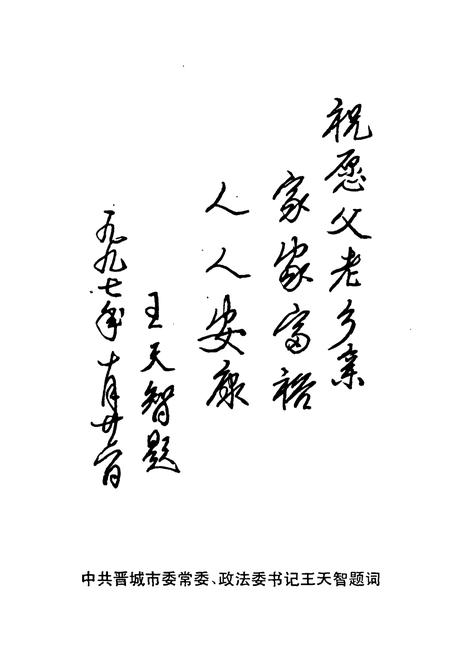 祝愿父老乡亲
家家富裕
人人安康
王天智题
一九九七年十月廿六日
中共晋城市委常委、政法委书记王天智题词